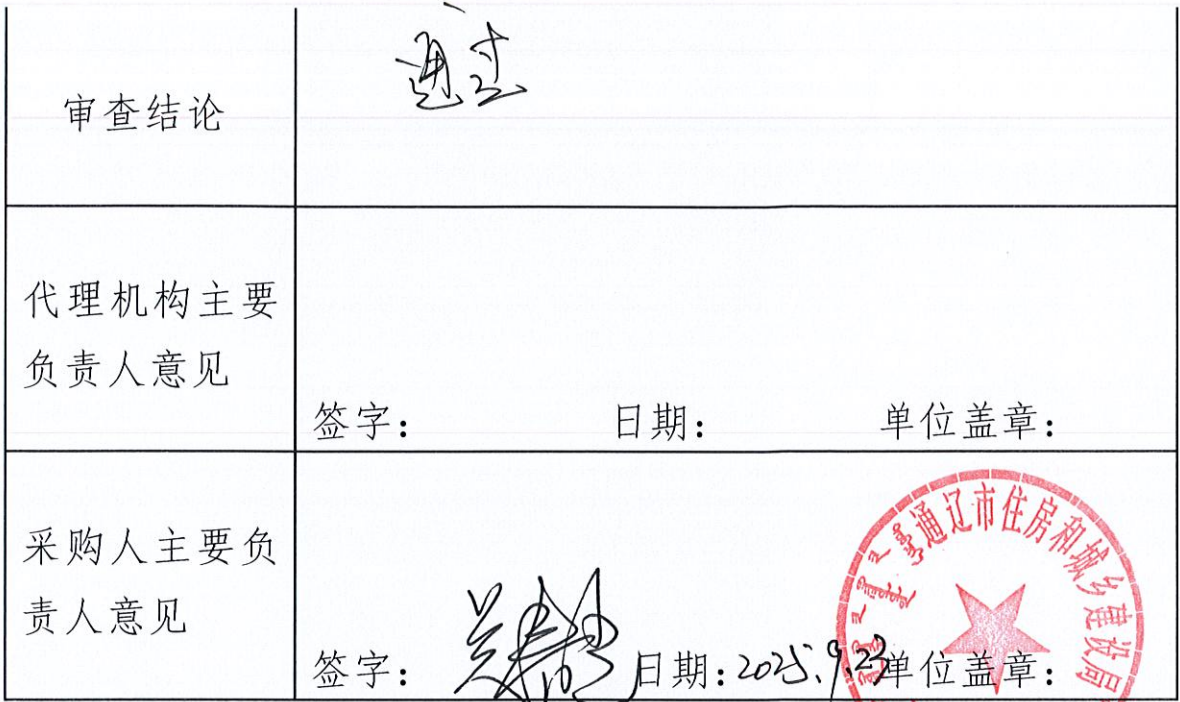 审查结论
通过
代理机构主要
负责人意见
签字： 日期： 单位盖章：
采购人主要负
责人意见
签字： 日期：2025.9.23 单位盖章：
通辽市住房和城乡建设局